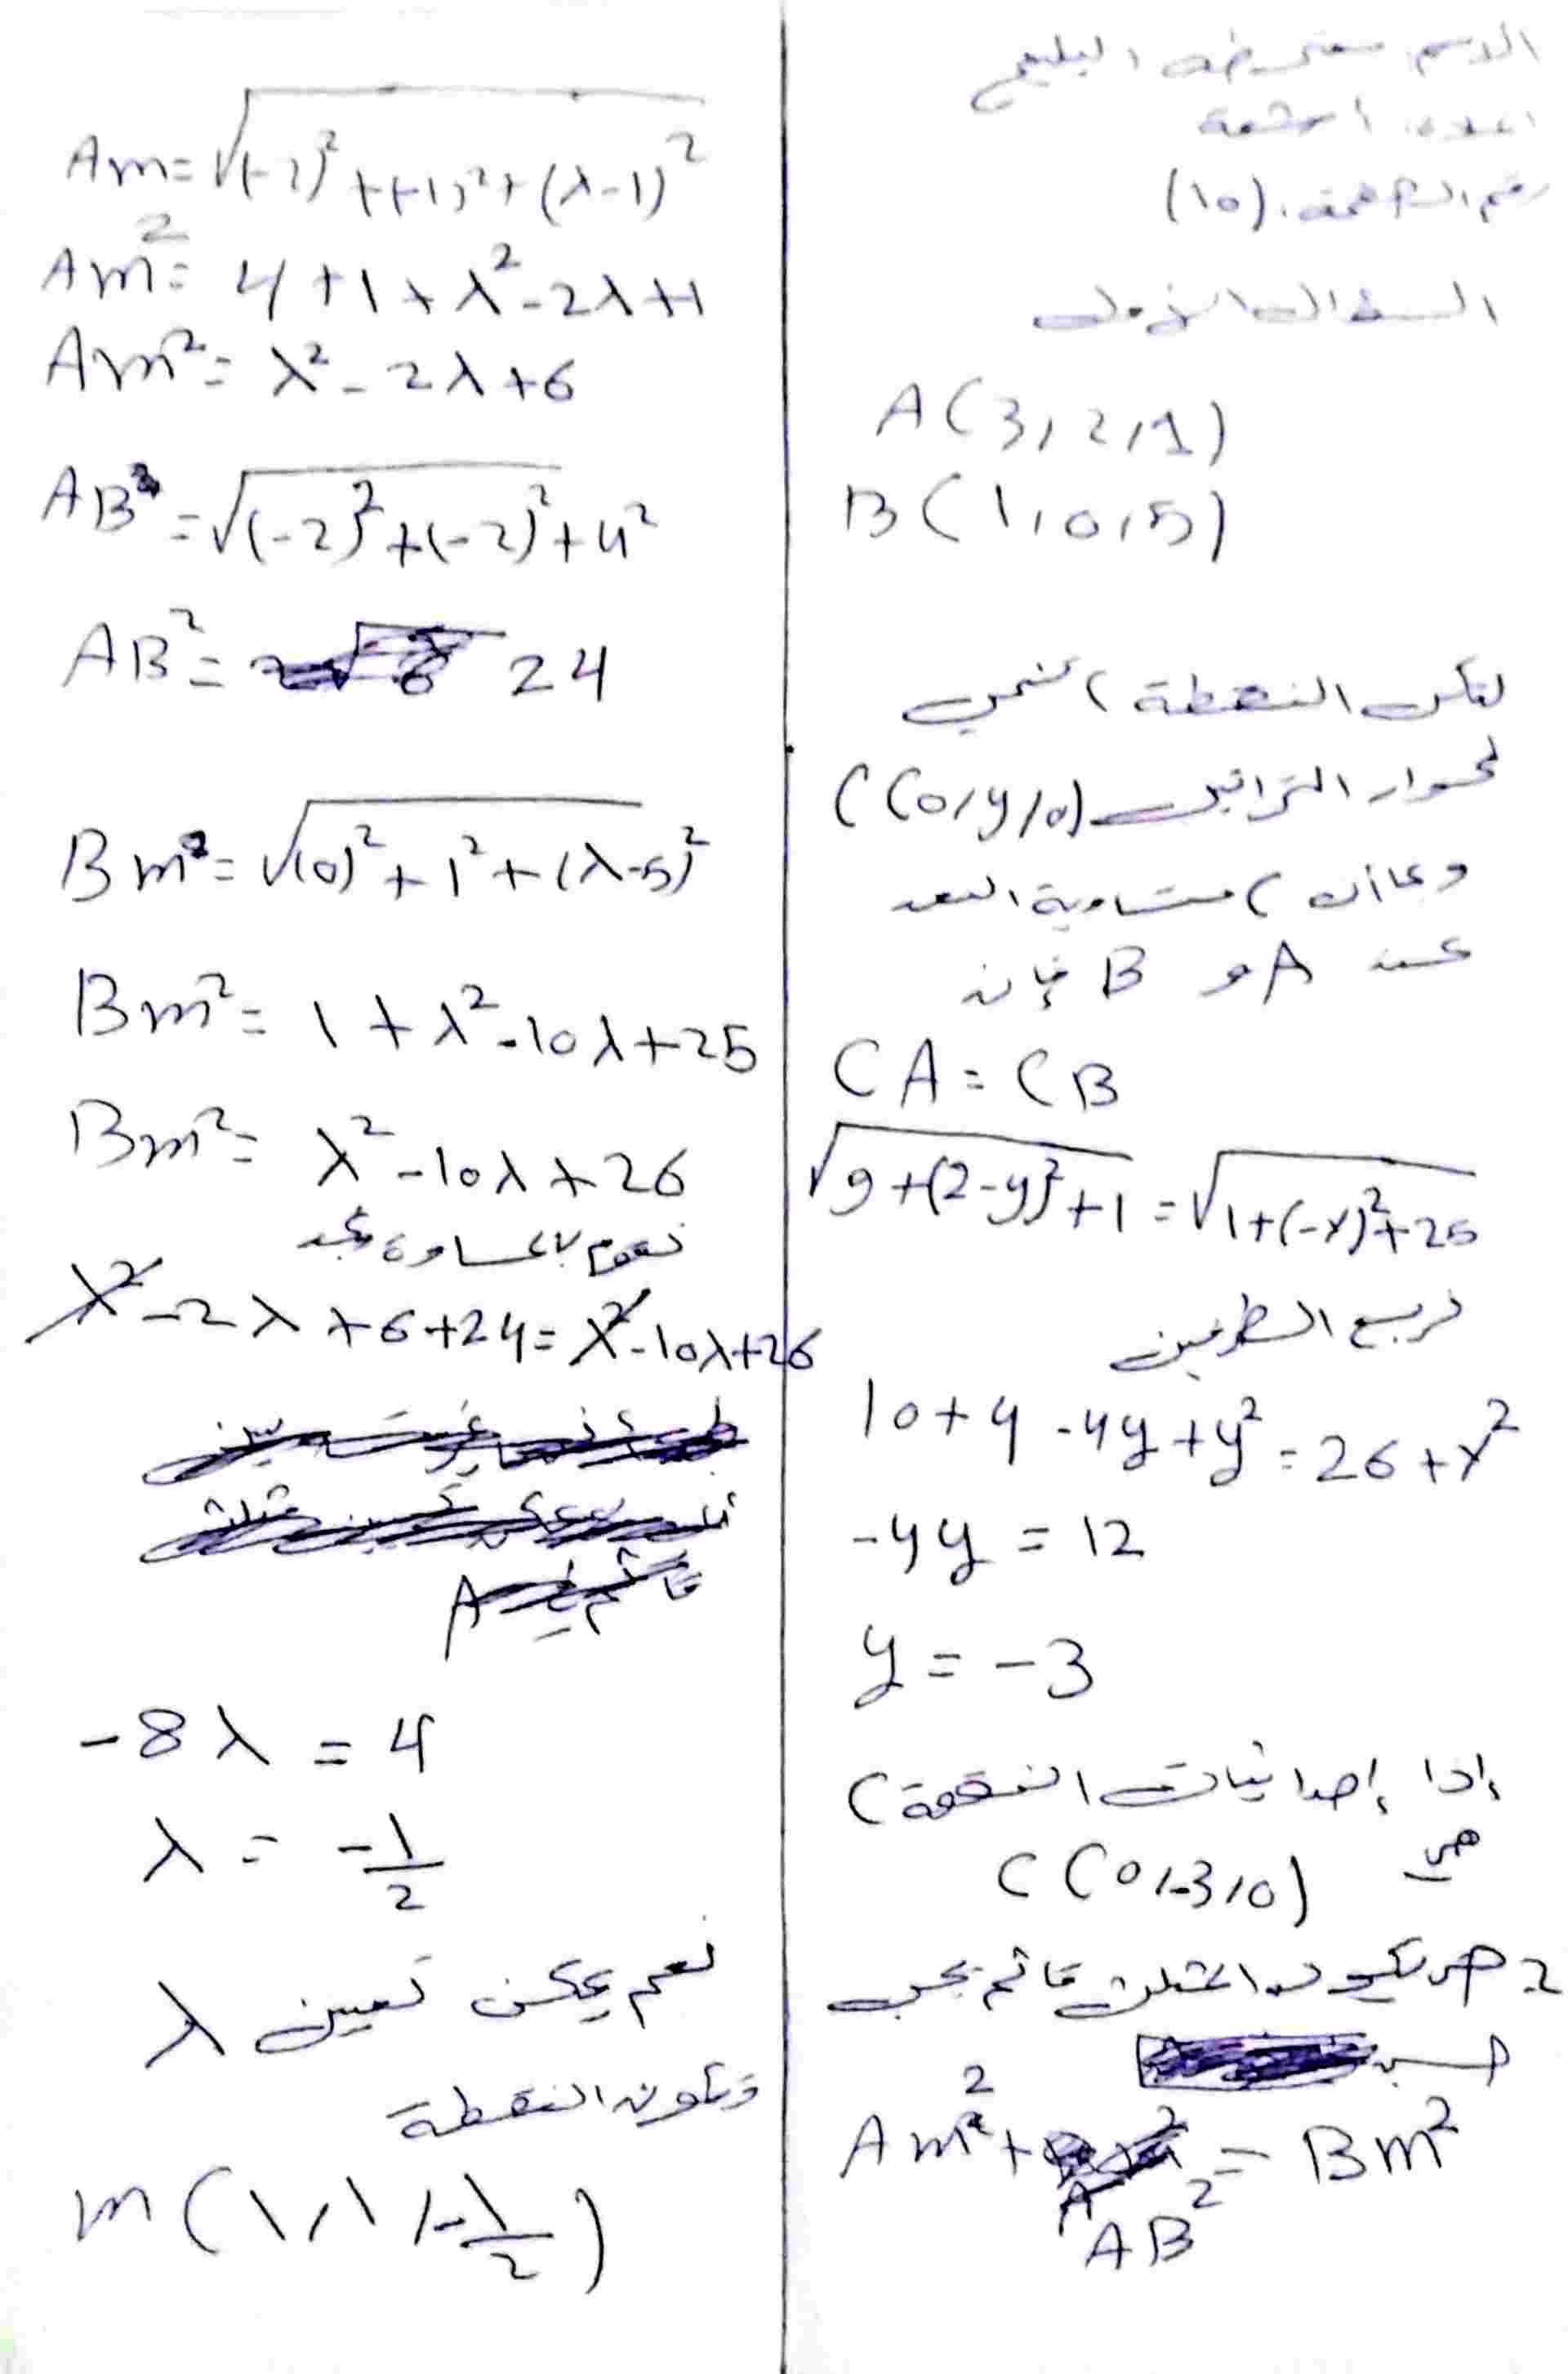 الاسم:
(10)
السؤال الأول
A(3,2,1)
B(1,0,5)
لتكن النقطة C تنتمي
لمحور التراتيب C(0,y,0)
وبما أن C متساوية البعد
عن A و B فإن
CA = CB
√9+(2-y)²+1 = √1+(-y)²+25
نربع الطرفين
10+4-4y+y² = 26+y²
-4y = 12
y = -3
إذا إحداثيات النقطة C
هي C(0,-3,0)
2- حتى يكون المثلث قائم يجب
Am²+AB² = Bm²
Am = √(-2)²+(-1)²+(λ-1)²
Am² = 4+1+λ²-2λ+1
Am² = λ²-2λ+6
AB = √(-2)²+(-2)²+4²
AB² = 24
Bm = √(0)²+1²+(λ-5)²
Bm² = 1+λ²-10λ+25
Bm² = λ²-10λ+26
نقوم بالمساواة نجد
λ²-2λ+6+24 = λ²-10λ+26
-8λ = 4
λ = -1/2
نعم يمكن تعيين λ
وتكون النقطة
m(1,1,-1/2)